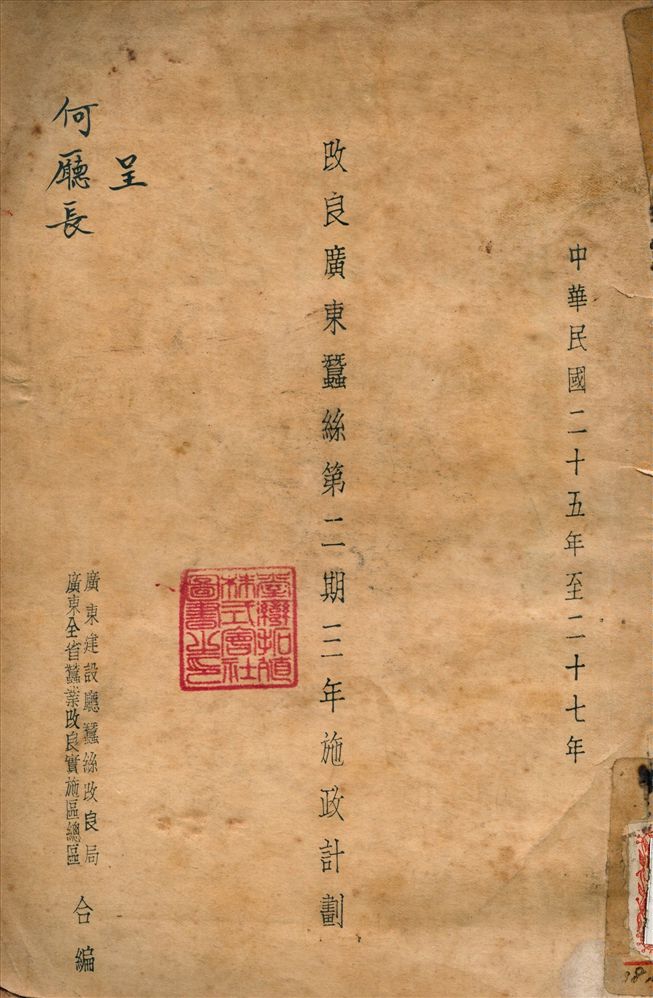 中華民國二十五年至二十七年
改良廣東蠶絲第二期三年施政計劃
臺灣拓殖
株式會社
圖書之印
呈
何廳長
廣東建設廳蠶絲改良局
廣東全省蠶業改良實施區總區
合編